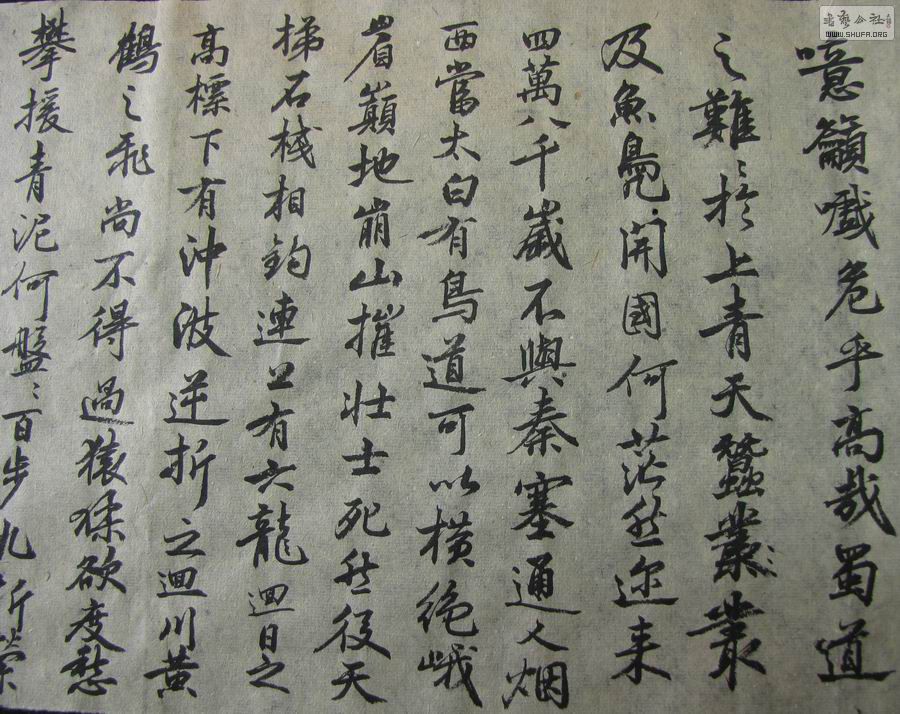 噫籲嚱危乎高哉蜀道
之難〻於上青天蠶叢〻叢
及魚鳧開國何茫然迩来
四萬八千歲不與秦塞通人烟
西當太白有鳥道可以横绝峨
眉巔地崩山摧壮士死然後天
梯石棧相鈎連上有六龍迴日之
高標下有沖波逆折之迴川黄
鶴之飛尚不得過猿猱欲度愁
攀援青泥何盤〻百步九折縈
WWW.SHUFA.ORG